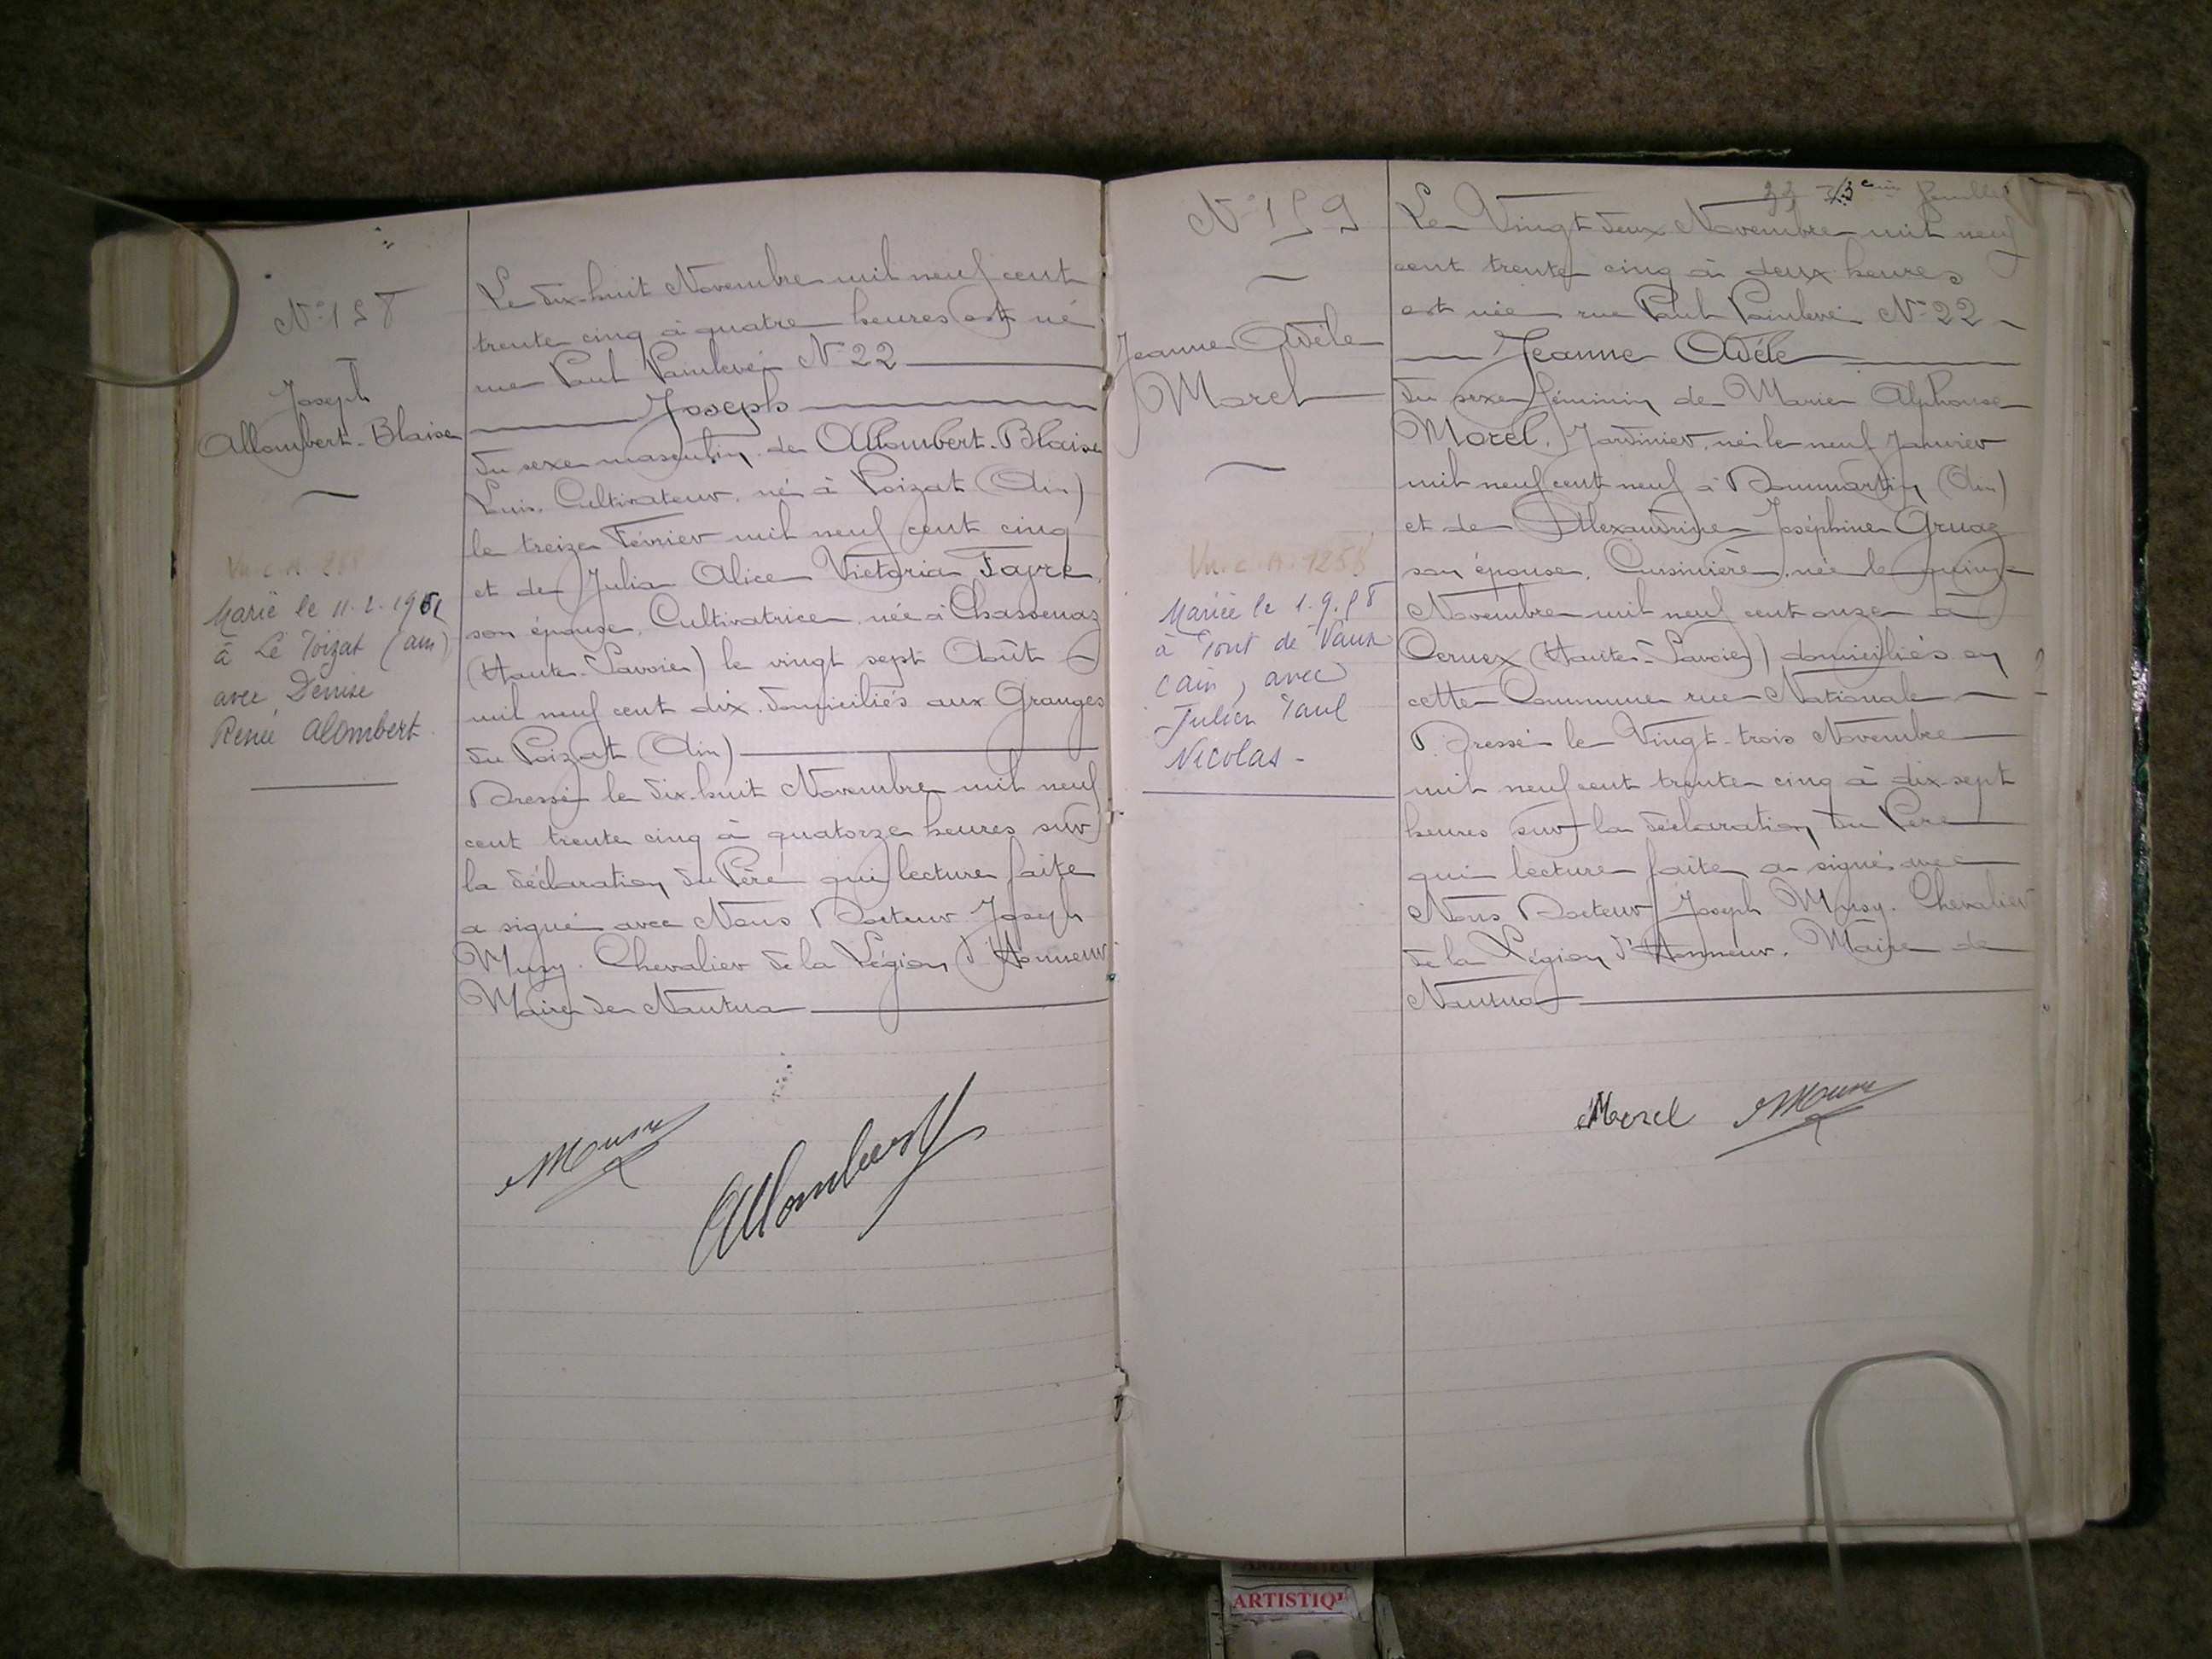 N° 158
Joseph
Allombert-Blaise
Marié le 11.2.1961
à Le Poizat (ain)
avec Denise
Renée Alombert.
Le dix-huit Novembre mil neuf cent
trente cinq à quatre heures est né
rue Paul Painlevé N° 22
Joseph
du sexe masculin de Allombert-Blaise
Louis, Cultivateur, né à Poizat (Ain)
le treize Février mil neuf cent cinq
et de Julia Alice Victoria Favre,
son épouse, Cultivatrice, née à Chassenaz
(Haute-Savoie) le vingt sept Août
mil neuf cent dix. domiciliés aux Granges
du Poizat (Ain)
Dressé le dix-huit Novembre mil neuf
cent trente cinq à quatorze heures sur
la déclaration du Père qui lecture faite
a signé avec Nous Docteur Joseph
Musy. Chevalier de la Légion d'Honneur
Maire de Nantua
Allombert
N° 159
Jeanne Adèle
Morel
Vu. c. A. 1258
Mariée le 1.9.58
à Pont de Vaux
(ain), avec
Julien Paul
Nicolas -
feuillet
Le Vingt deux Novembre mil neuf
cent trente cinq à deux heures
est née rue Paul Painlevé N° 22
Jeanne Adèle
du sexe féminin de Marie Alphonse
Morel, Jardinier, né le neuf Janvier
mil neuf cent neuf à Dommartin (Ain)
et de Alexandrine Joséphine Gruaz
son épouse, Cuisinière, née le quinze
Novembre mil neuf cent onze à
Cernex (Haute-Savoie) domiciliés en
cette Commune rue Nationale
Dressé le Vingt-trois Novembre
mil neuf cent trente cinq à dix-sept
heures sur la déclaration du Père
qui lecture faite a signé avec
Nous Docteur Joseph Musy. Chevalier
de la Légion d'Honneur. Maire de
Nantua
Morel
ARTISTIQ